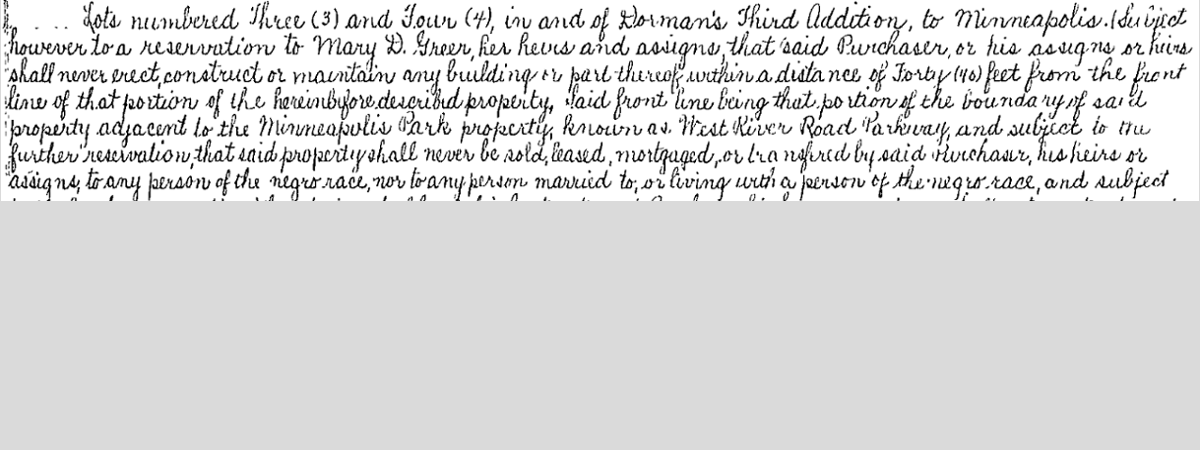 . . . Lots numbered Three (3) and Four (4), in and of Dorman's Third Addition, to Minneapolis. (Subject
however to a reservation to Mary D. Greer, her heirs and assigns, that said Purchaser, or his assigns or heirs
shall never erect, construct or maintain any building or part thereof, within a distance of Forty (40) feet from the front
line of that portion of the hereinbefore described property, said front line being that portion of the boundary of said
property adjacent to the Minneapolis Park property, known as West River Road Parkway, and subject to the
further reservation, that said property shall never be sold, leased, mortgaged, or transfired by said Purchaser, his heirs or
assigns, to any person of the negro race, nor to any person married to, or living with a person of the negro race, and subject